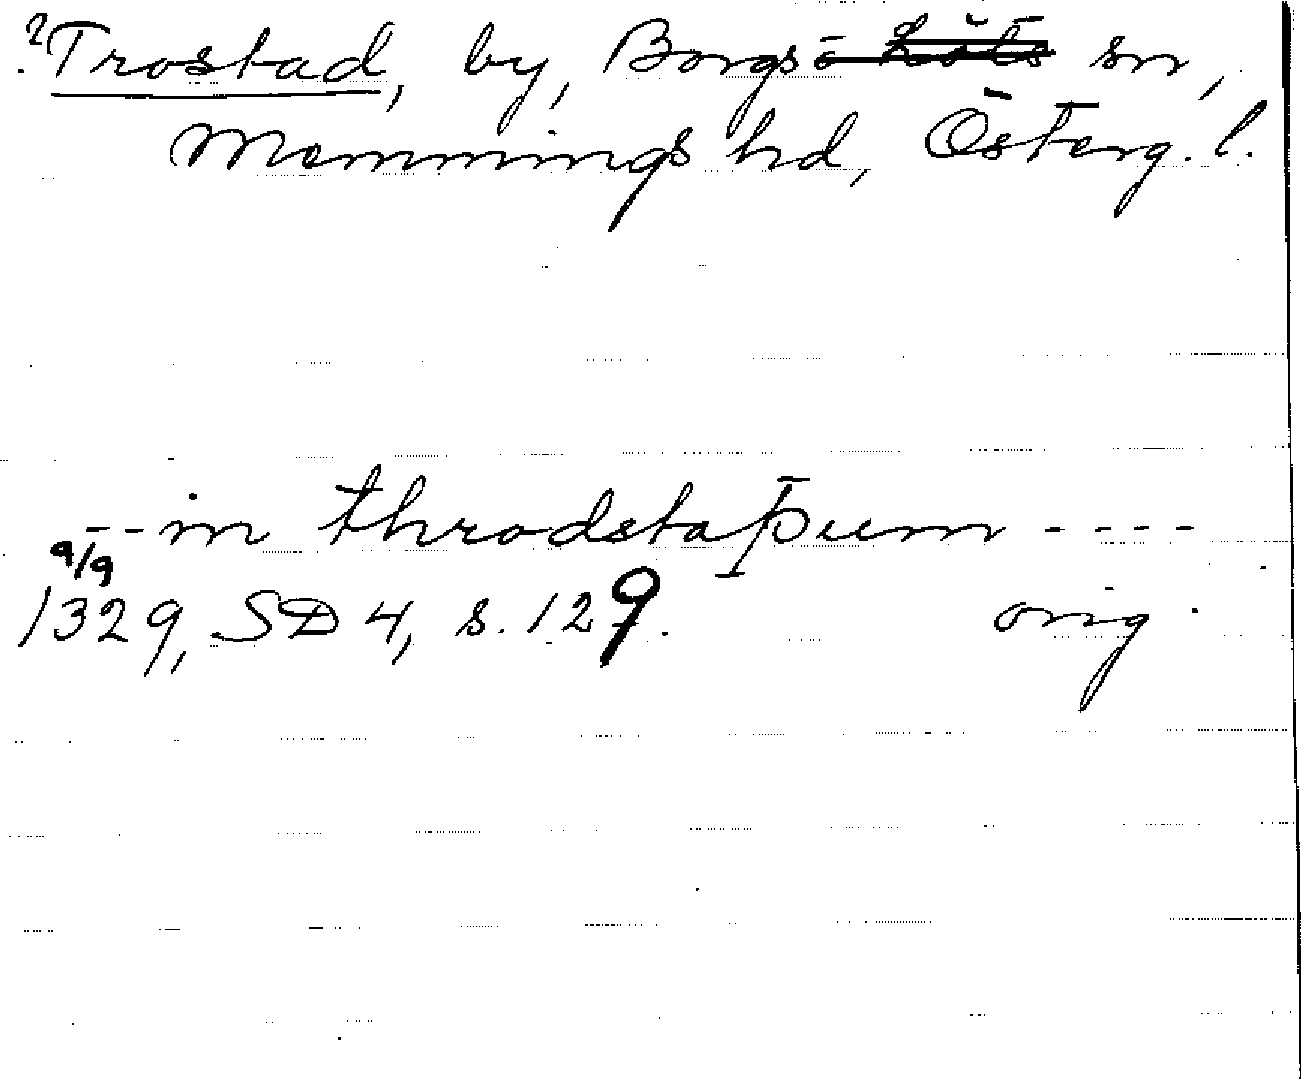 ? Trostad, by, Borgs ö Löts sn,
Memmings hd, Österg. l.
--in throdstaþum ----
9/9
1329, SD 4, s. 129. orig.